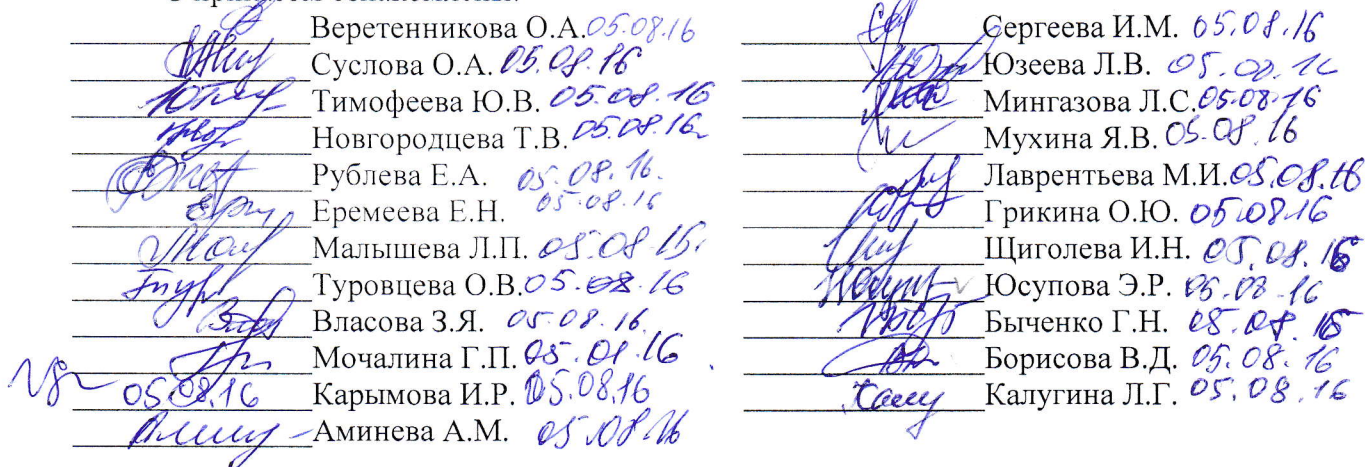 Веретенникова О.А. 05.08.16
Суслова О.А. 05.08.16
Тимофеева Ю.В. 05.08.16
Новгородцева Т.В. 05.08.16
Рублева Е.А. 05.08.16.
Еремеева Е.Н. 05.08.16
Малышева Л.П. 05.08.15.
Туровцева О.В. 05.08.16
Власова З.Я. 05.08.16.
Мочалина Г.П. 05.08.16
05.08.16 Карымова И.Р. 05.08.16
Аминева А.М. 05.08.16
Сергеева И.М. 05.08.16
Юзеева Л.В. 05.08.16
Мингазова Л.С. 05.08.16
Мухина Я.В. 05.08.16
Лаврентьева М.И. 05.08.16
Грикина О.Ю. 05.08.16
Щиголева И.Н. 05.08.16
Юсупова Э.Р. 05.08.16
Быченко Г.Н. 05.08.16
Борисова В.Д. 05.08.16
Калугина Л.Г. 05.08.16